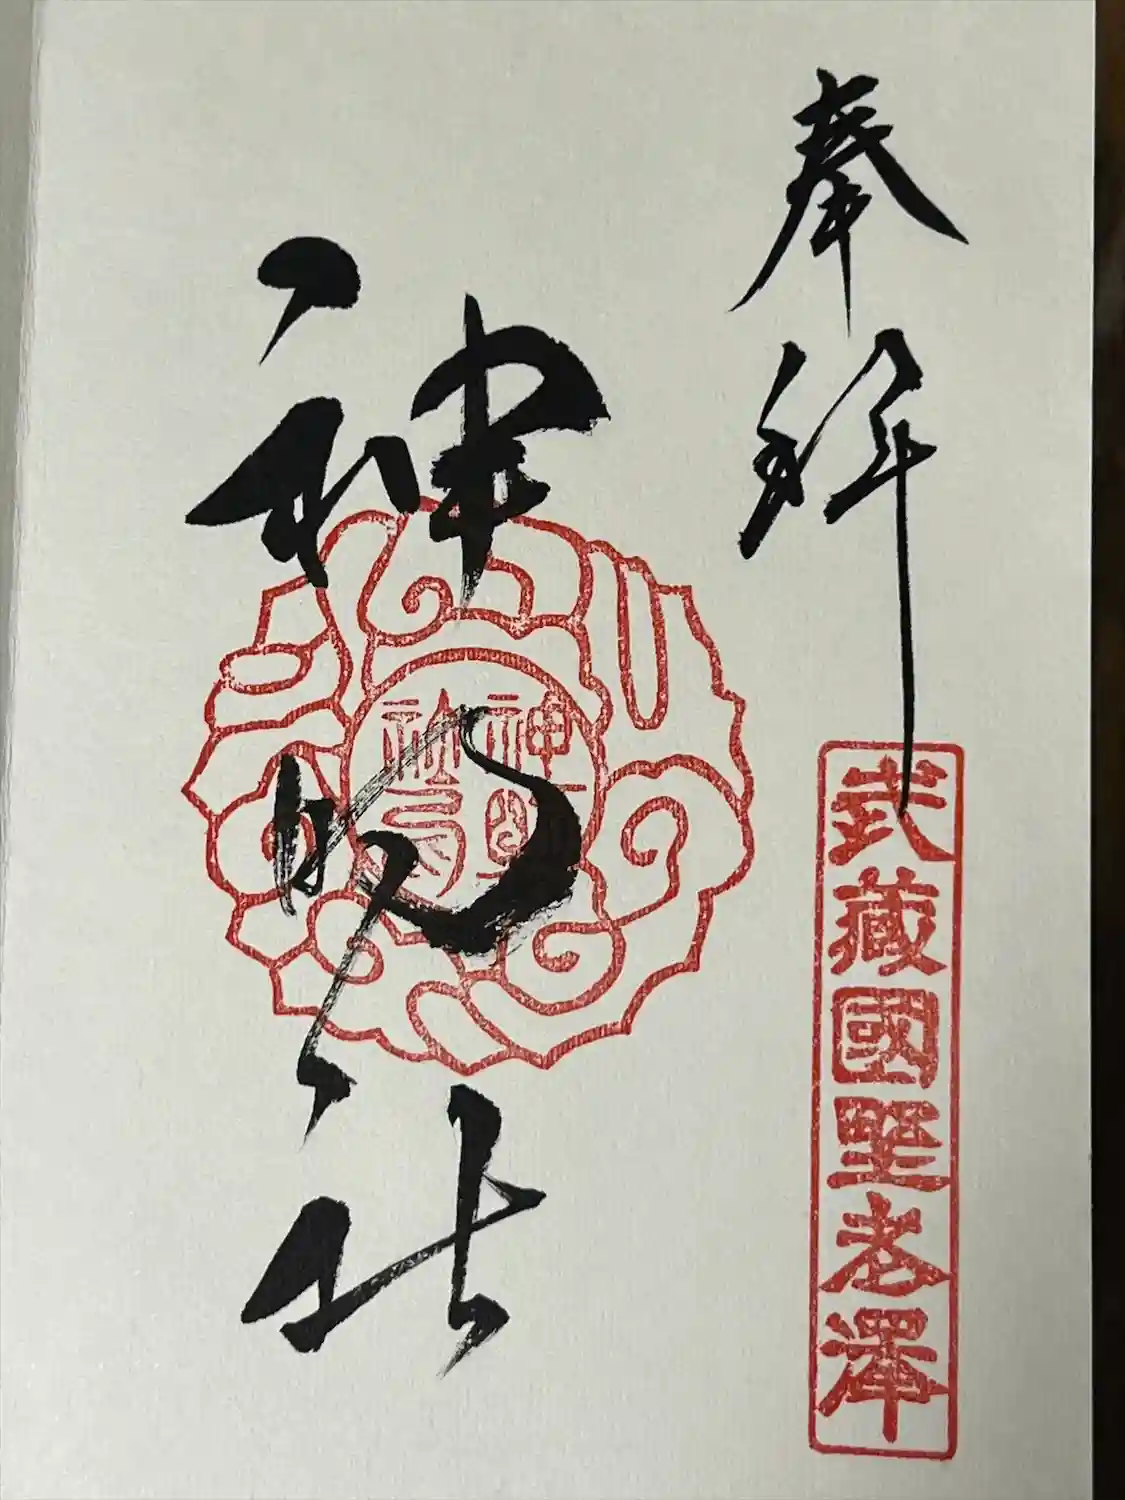 奉拜
武藏國野老澤
神明社
神明
社印